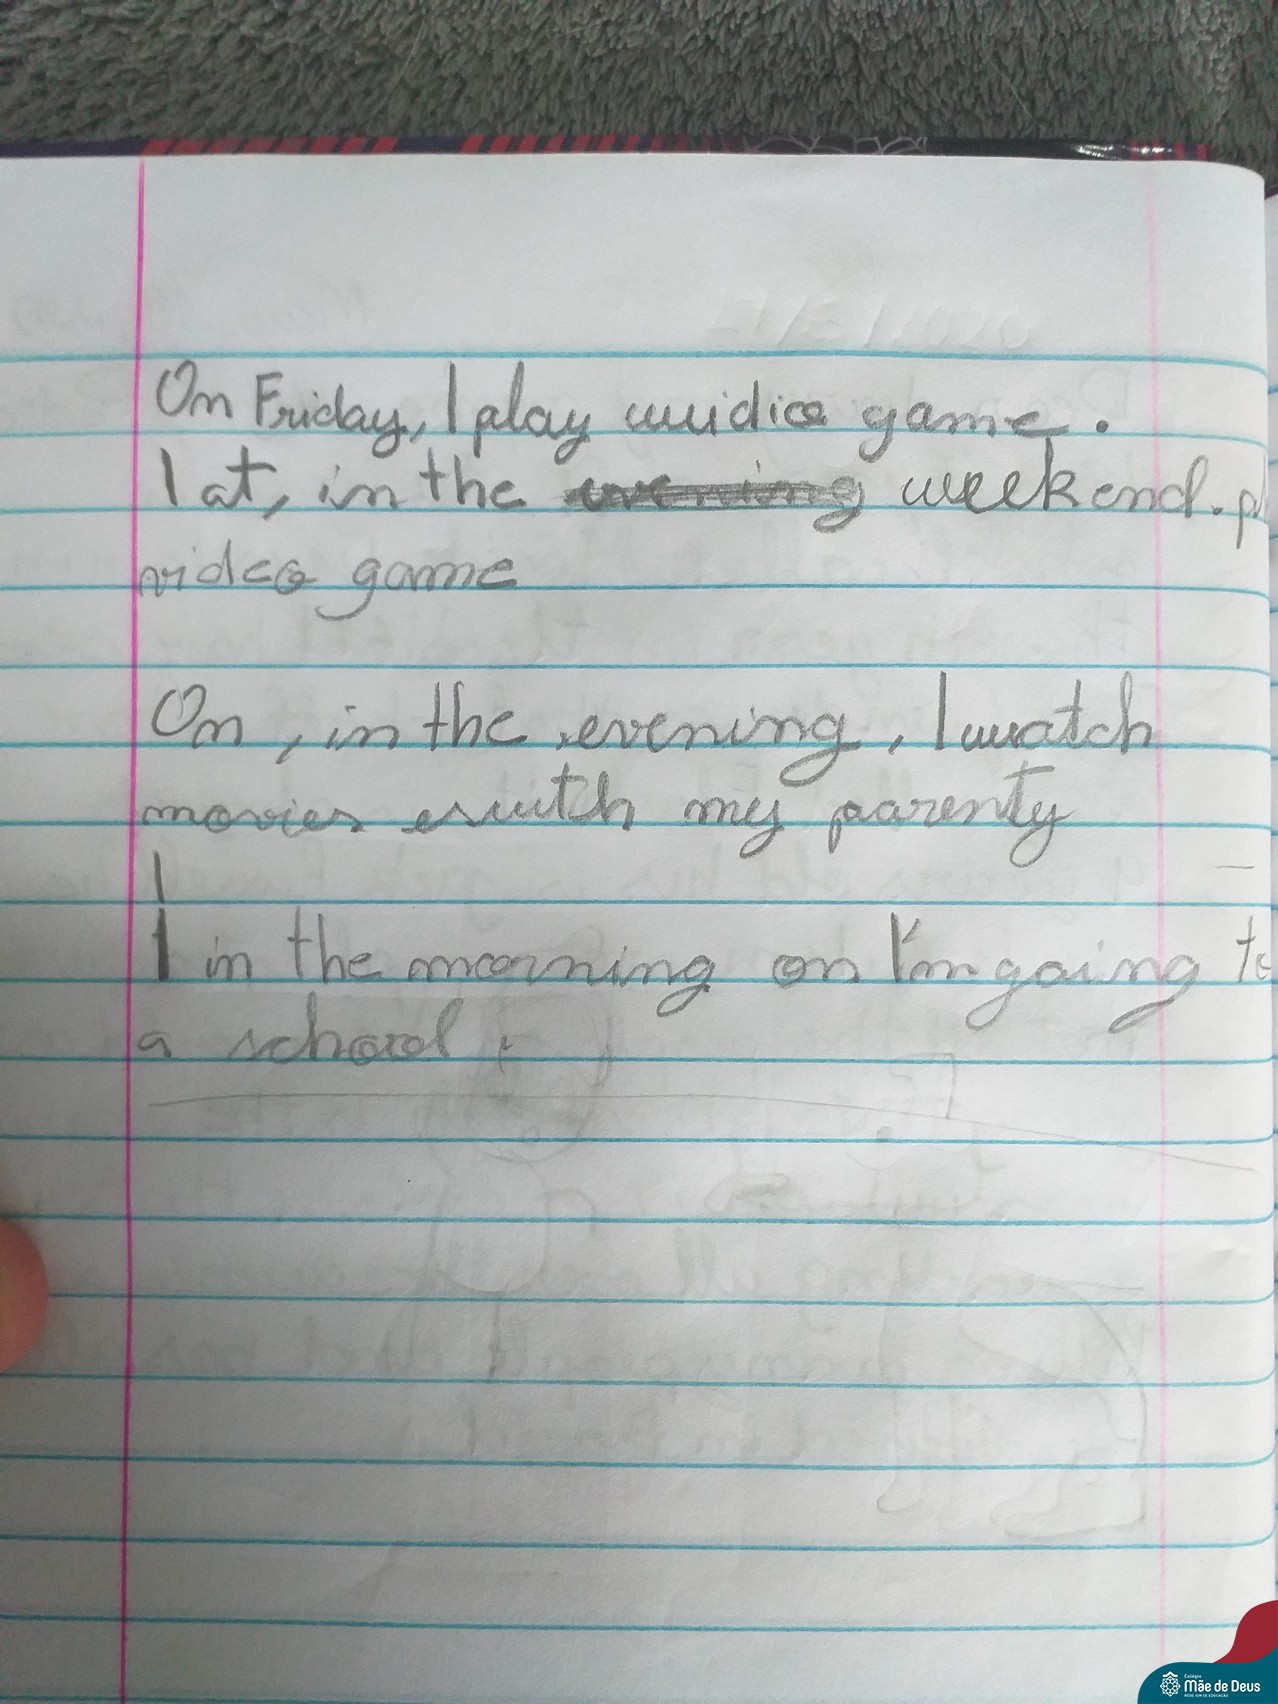 On Friday, I play wuidico game.
I at, in the evening weekend. pl
video game
On, in the evening, I watch
movies ewith my parenty
I
I in the morning on I'm going to
a school.
Colégio
Mãe de Deus
REDE ICM DE EDUCAÇÃO